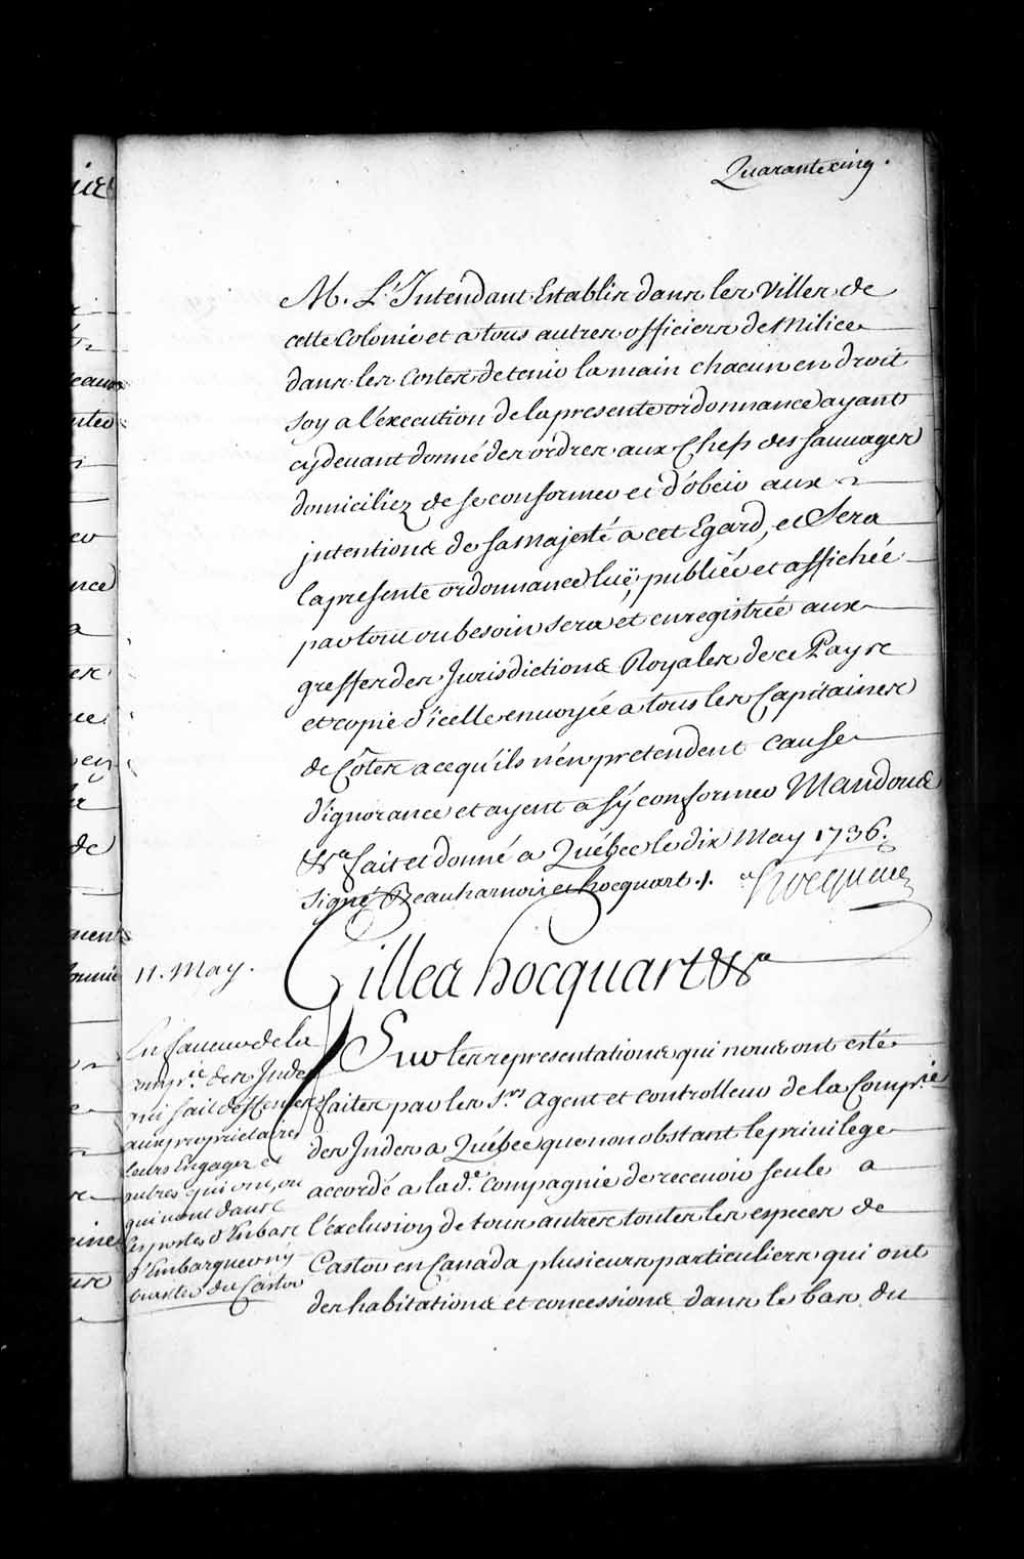 Quarante cinq.
M. L'Intendant Establis dans les Villes de
cette Colonie et a tous autres officiers de Milice
dans les Costes de tenir la main chacun en droit
soy a l'éxecution de la presente ordonnance ayant
cy devant donné des ordres aux Chefs des sauvages
domiciliez de se conformer et d'obeir aux
jntentions de sa Majesté a cet Egard, et Sera
la presente ordonnance luë, publiée et affichée
par tout ou besoin sera et enregistrée aux
greffes des Jurisdictions Royales de ce Pays
et copie d'icelle envoyée a tous les Capitaines
de Côtes a ce qu'ils n'en pretendent cause
d'ignorance et ayent a s'ÿ conformer Mandons
&ra fait et donné a Québec le dix May 1736.
signé Beauharnois et hocquart ./. Hocquart
11. May.
Gilles hocquart &ra
En faveur de la
Comp.ie des Indes
qui fait deffenses
aux proprietaires
leurs Engagez et
autres qui ont, ou
qui vont dans
les postes d'Enbas
d'Embarquer ny
traiter du Castor
Sur les representations qui nous ont esté
faites par les S.rs agent et controlleur de la Comp.ie
des Indes a Québec que nonobstant le privilege
accordé a la d.e Compagnie de recevoir seule a
l'éxclusion de tous autres toutes les especes de
Castor en Canada plusieurs particuliers qui ont
des habitations et concessions dans le bas du